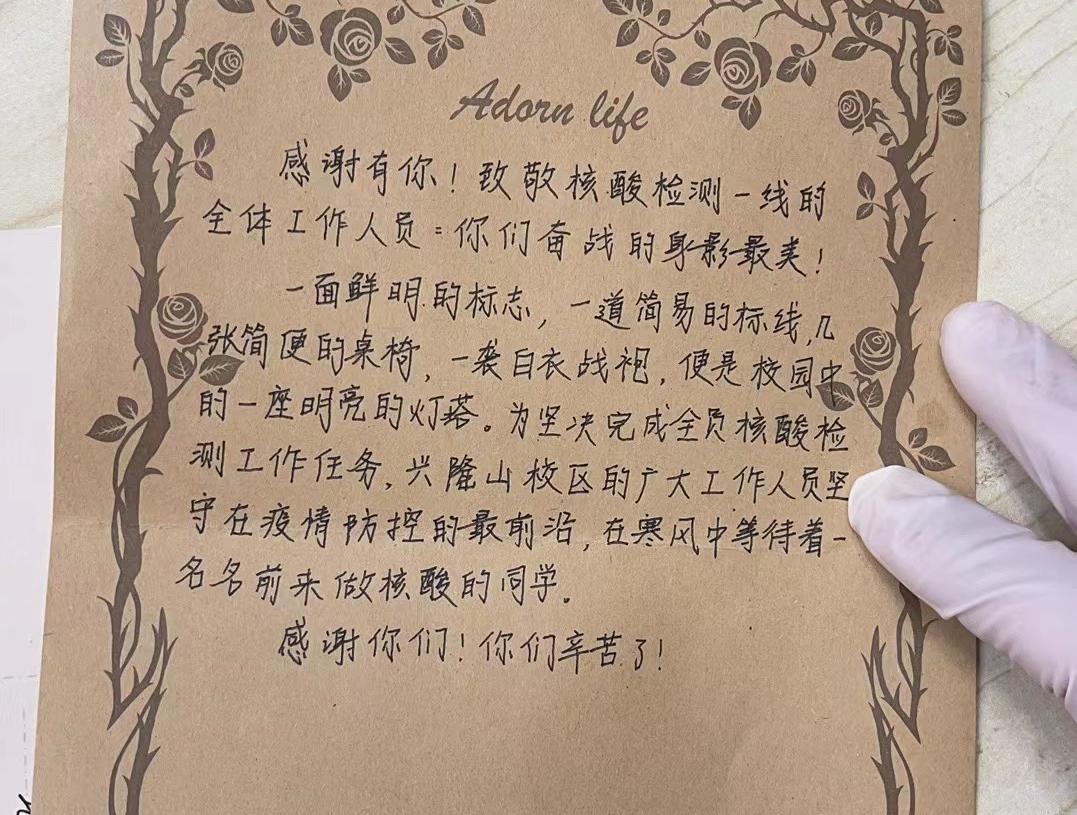 Adorn life
感谢有你！致敬核酸检测一线的
全体工作人员：你们奋战的身影最美！
一面鲜明的标志，一道简易的标线，几
张简便的桌椅，一袭白衣战袍，便是校园中
的一座明亮的灯塔。为坚决完成全员核酸检
测工作任务，兴隆山校区的广大工作人员坚
守在疫情防控的最前沿，在寒风中等待着一
名名前来做核酸的同学。
感谢你们！你们辛苦了！